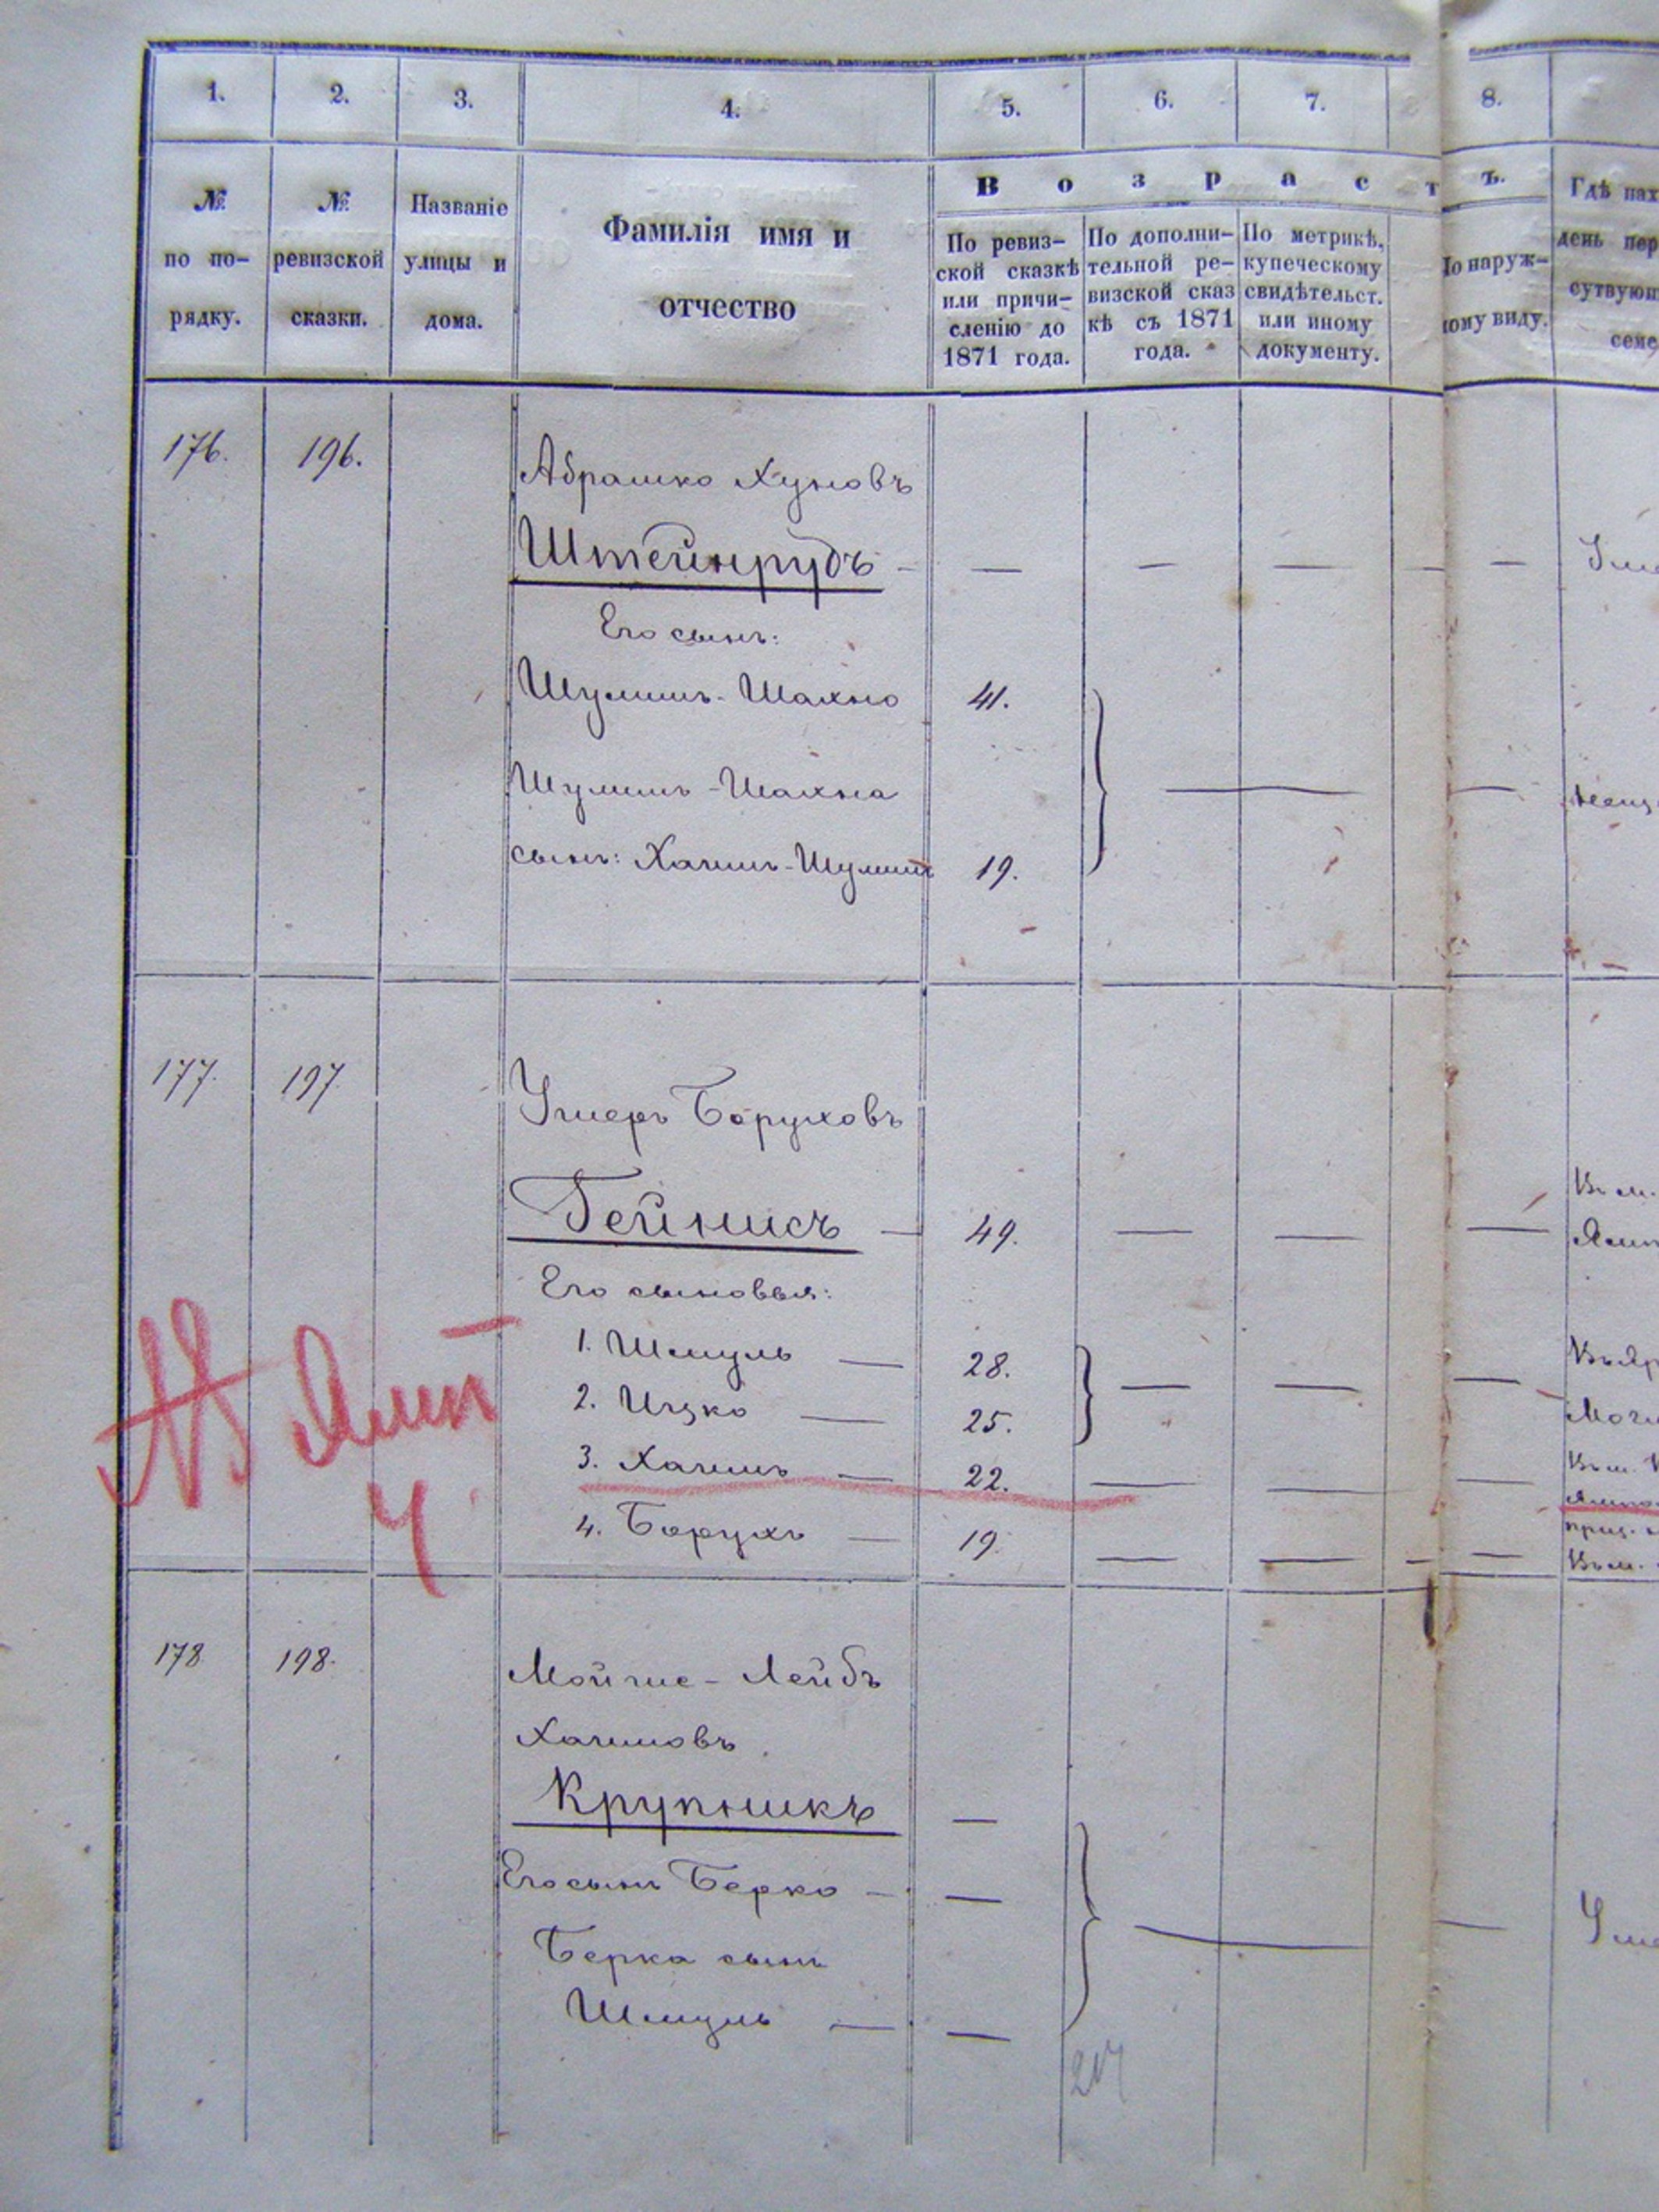 1. 2. 3. 4. 5. 6. 7. 8.
В о з р а с т ъ.
№ по по-рядку.
№ ревизской сказки.
Названіе улицы и дома.
Фамилія имя и отчество
По ревиз-ской сказкѣ или причи-сленію до 1871 года.
По дополни-тельной ре-визской сказкѣ съ 1871 года.
По метрикѣ, купеческому свидѣтельст. или иному документу.
По наруж-ному виду.
Гдѣ нах
день пер
сутвующ
семе
176. 196. Абрашко Хуновъ
Штейнрудъ — — — — — Уме
Его сынъ:
Шулимъ-Шахно 41.
Шулимъ-Шахна
сынъ: Хаимъ-Шулимъ 19.
177. 197. Ушеръ Боруховъ
Гейнисъ — 49. — — — Въ м.
Ямп
Его сыновья:
1. Шмуль — 28. Въ Яр
2. Ицко — 25. — — — Моги
3. Хаимъ — 22. — — — Въ м.
4. Борухъ — 19. — — — Въ м.
Ямп
4
178 198. Мойше-Лейбъ
Хаимовъ
Крупникъ —
Его сынъ Берко — —
Берка сынъ Уме
Шмуль — —